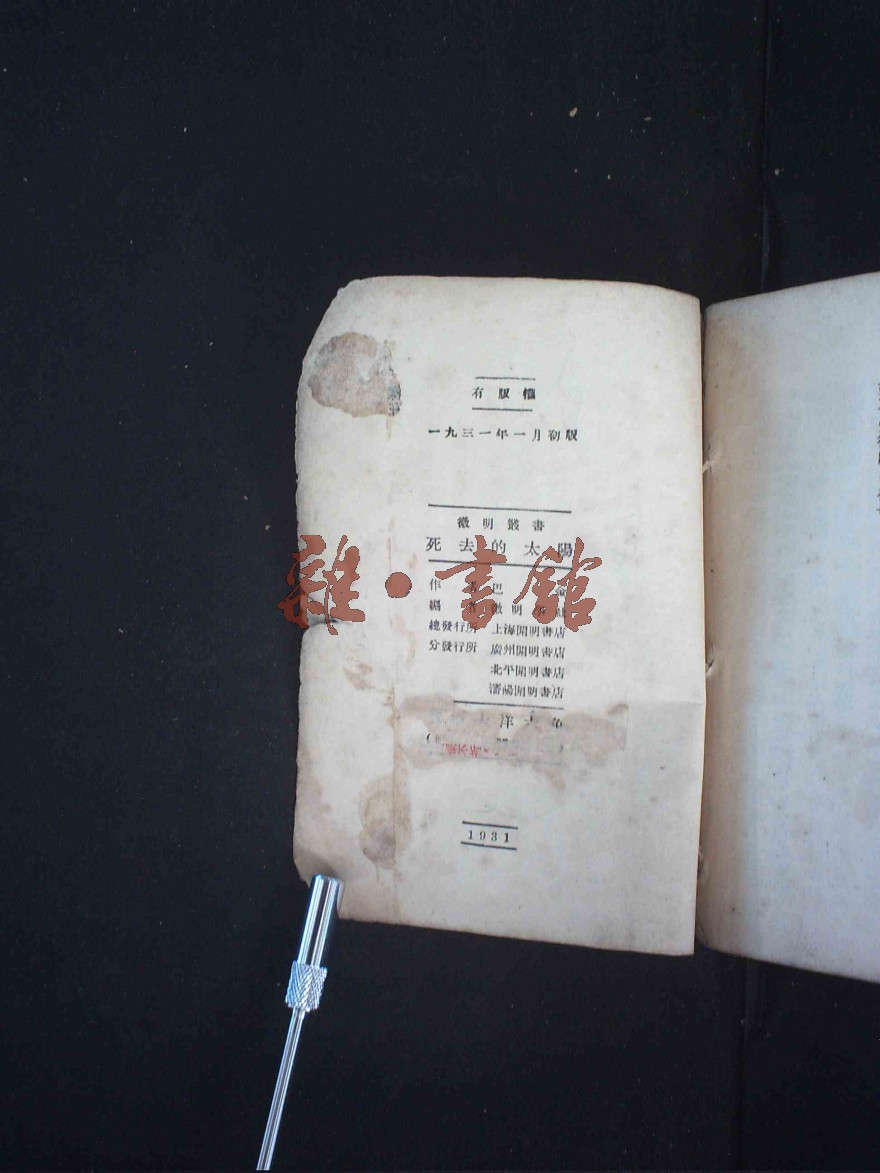 有版權
一九三一年一月初版
微明叢書
死去的太陽
作 巴
編 微明
總發行所 上海開明書店
分發行所 廣州開明書店
北平開明書店
瀋陽開明書店
大洋
1931
雜·書館